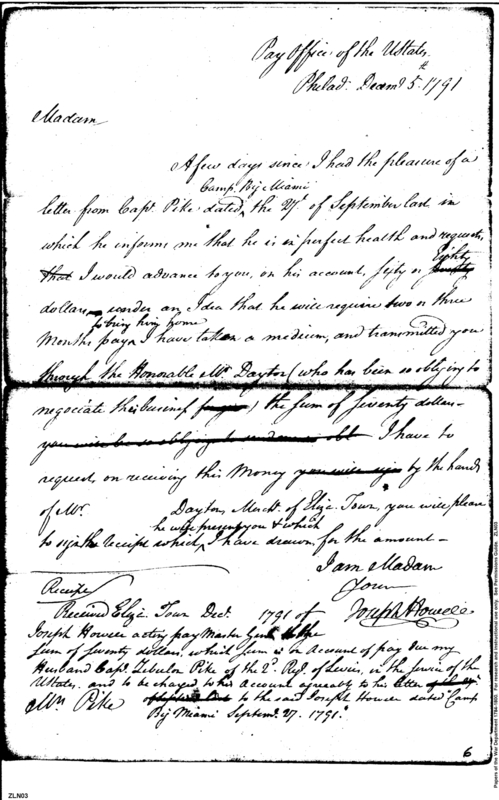 Pay Office of the UStates
Philad. Decemr 5th 1791
Madam
A few days since I had the pleasure of a
Camp Big Miami
letter from Capt. Pike dated, the 27th of September last in
which he informs me that he is in perfect health and requests,
Eighty
that I would advance to you, on his account, fifty or
dollars, under an Idea that he will require two or three
to bring him home
Months pay. I have taken a medium, and transmitted you
through the Honorable Mr. Dayton (who has been so obliging to
negociate this business) the sum of seventy dollars -
you will be so obliging to I have to
request, on receiving this Money you will sign by the hands
of Mr. Dayton, Mercht. of Eliz. Town, you will please
he will present you & which
to sign the receipt which, I have drawn for the amount -
I am Madam
Your
Joseph Howell
Receipt
Received Eliz. Town Decr. 1791 of
Joseph Howell acting pay Master Genl. the
sum of seventy dollars, which sum is on Account of pay due my
Husband Capt. Zebulon Pike of the 2d. Regt. of Levies, in the service of the
UStates, and to be charged to his Account agreeably to his letter
to the said Joseph Howell dated Camp
Mrs Pike
Big Miami Septemr. 27. 1791.
6
ZLN03